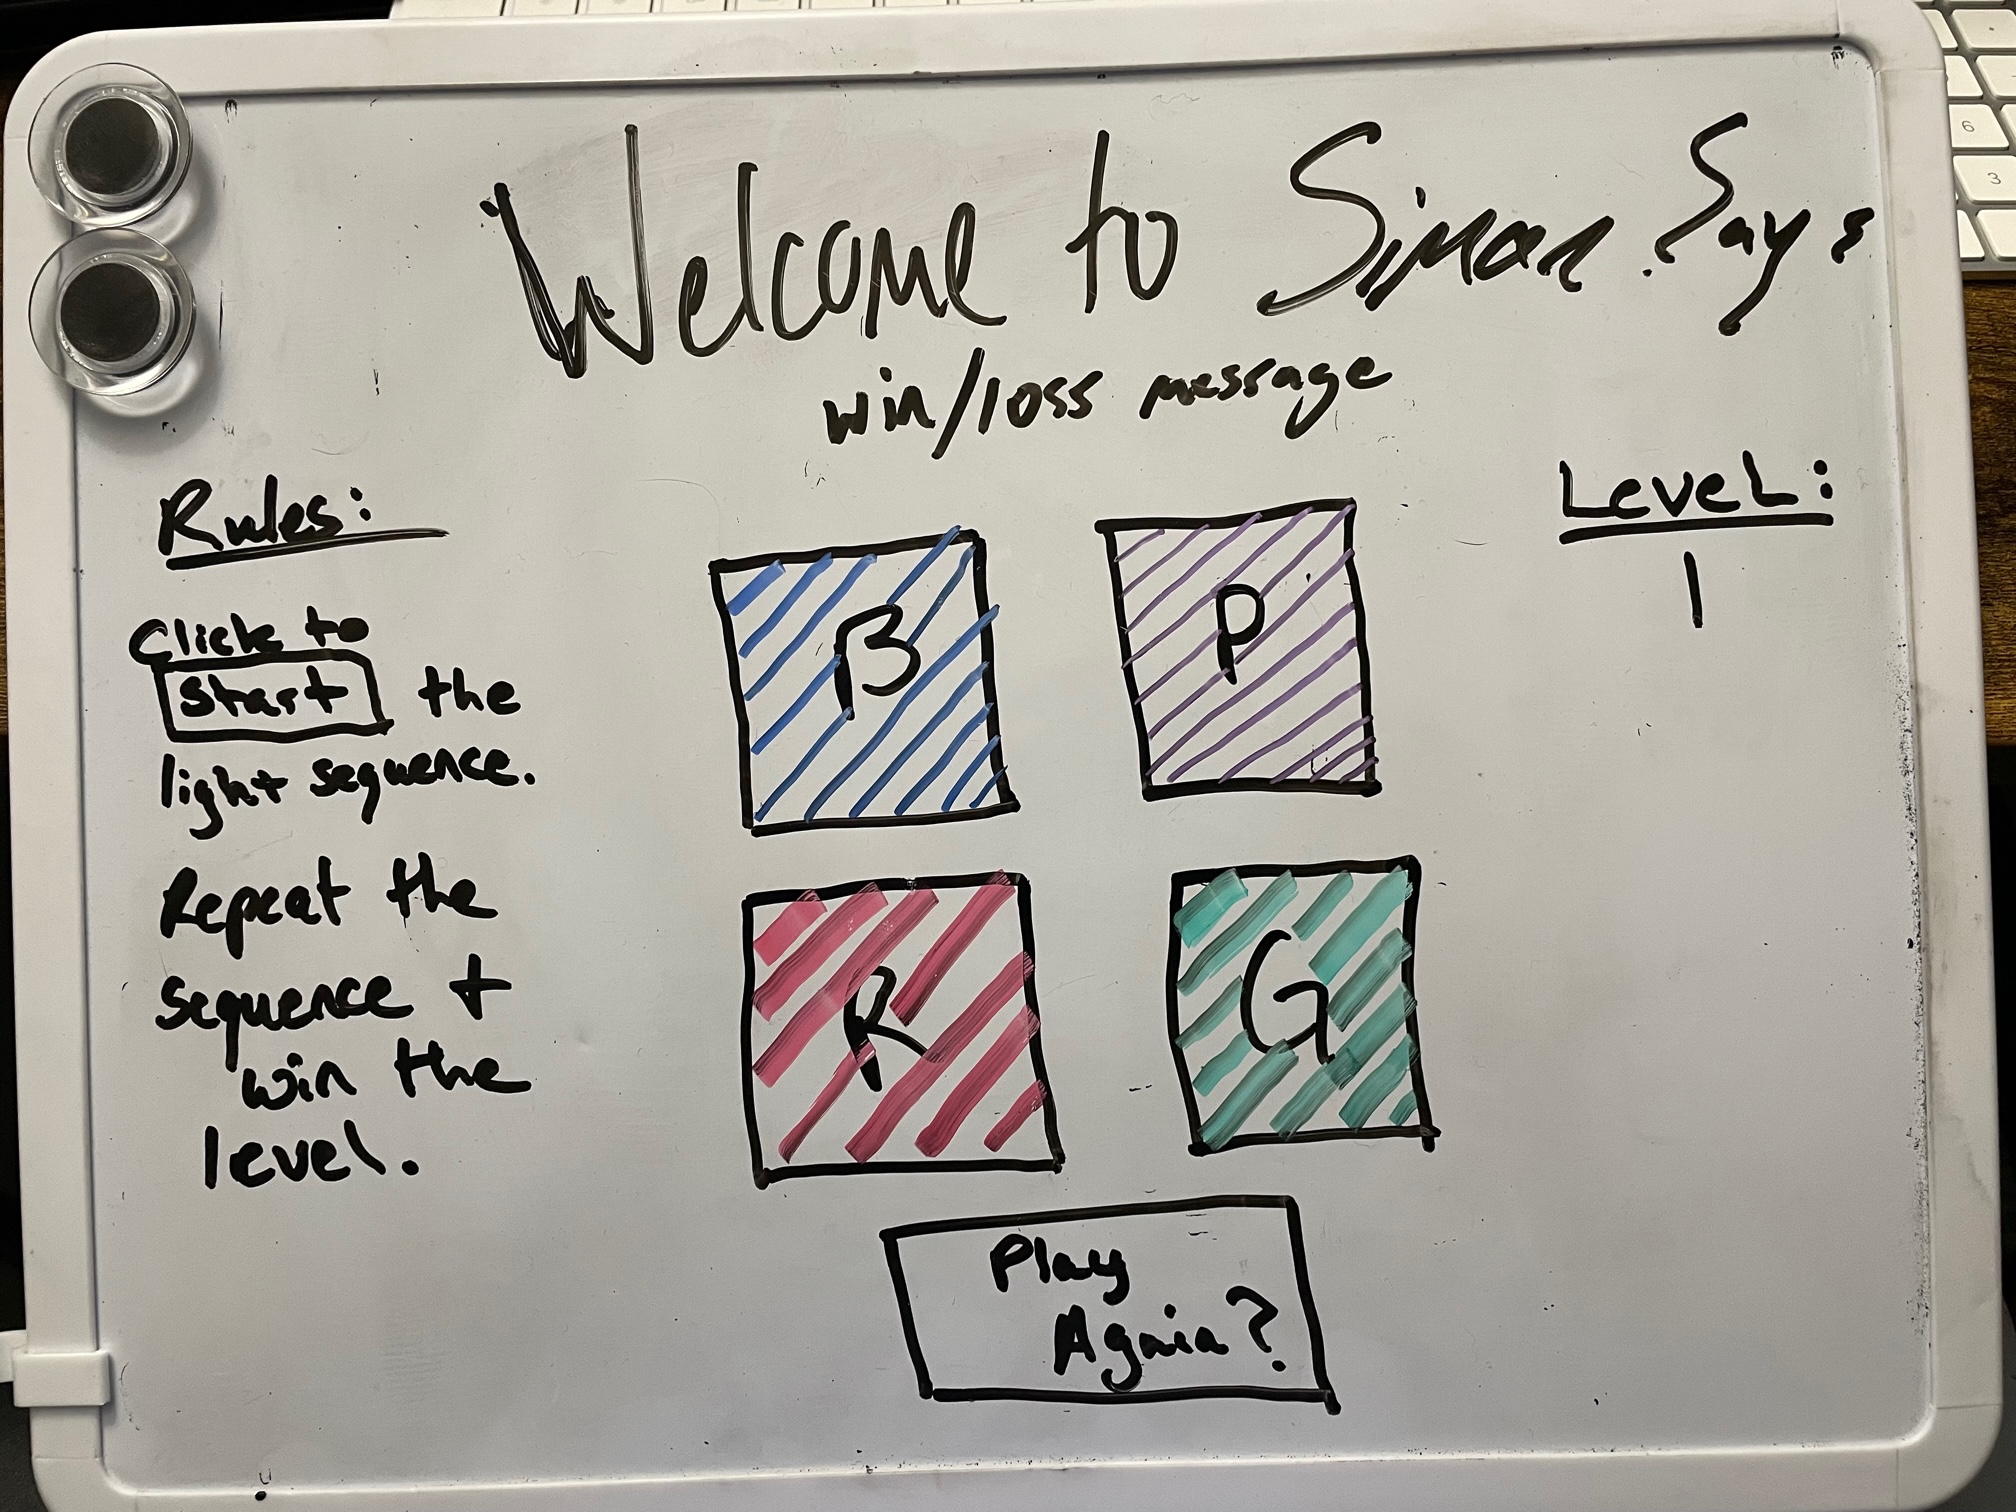 Welcome to Simon Says
win/loss message
Rules:
Click to
Start the
light sequence.
Repeat the
sequence +
win the
level.
B
P
R
G
Level:
1
Play
Again?
6
3